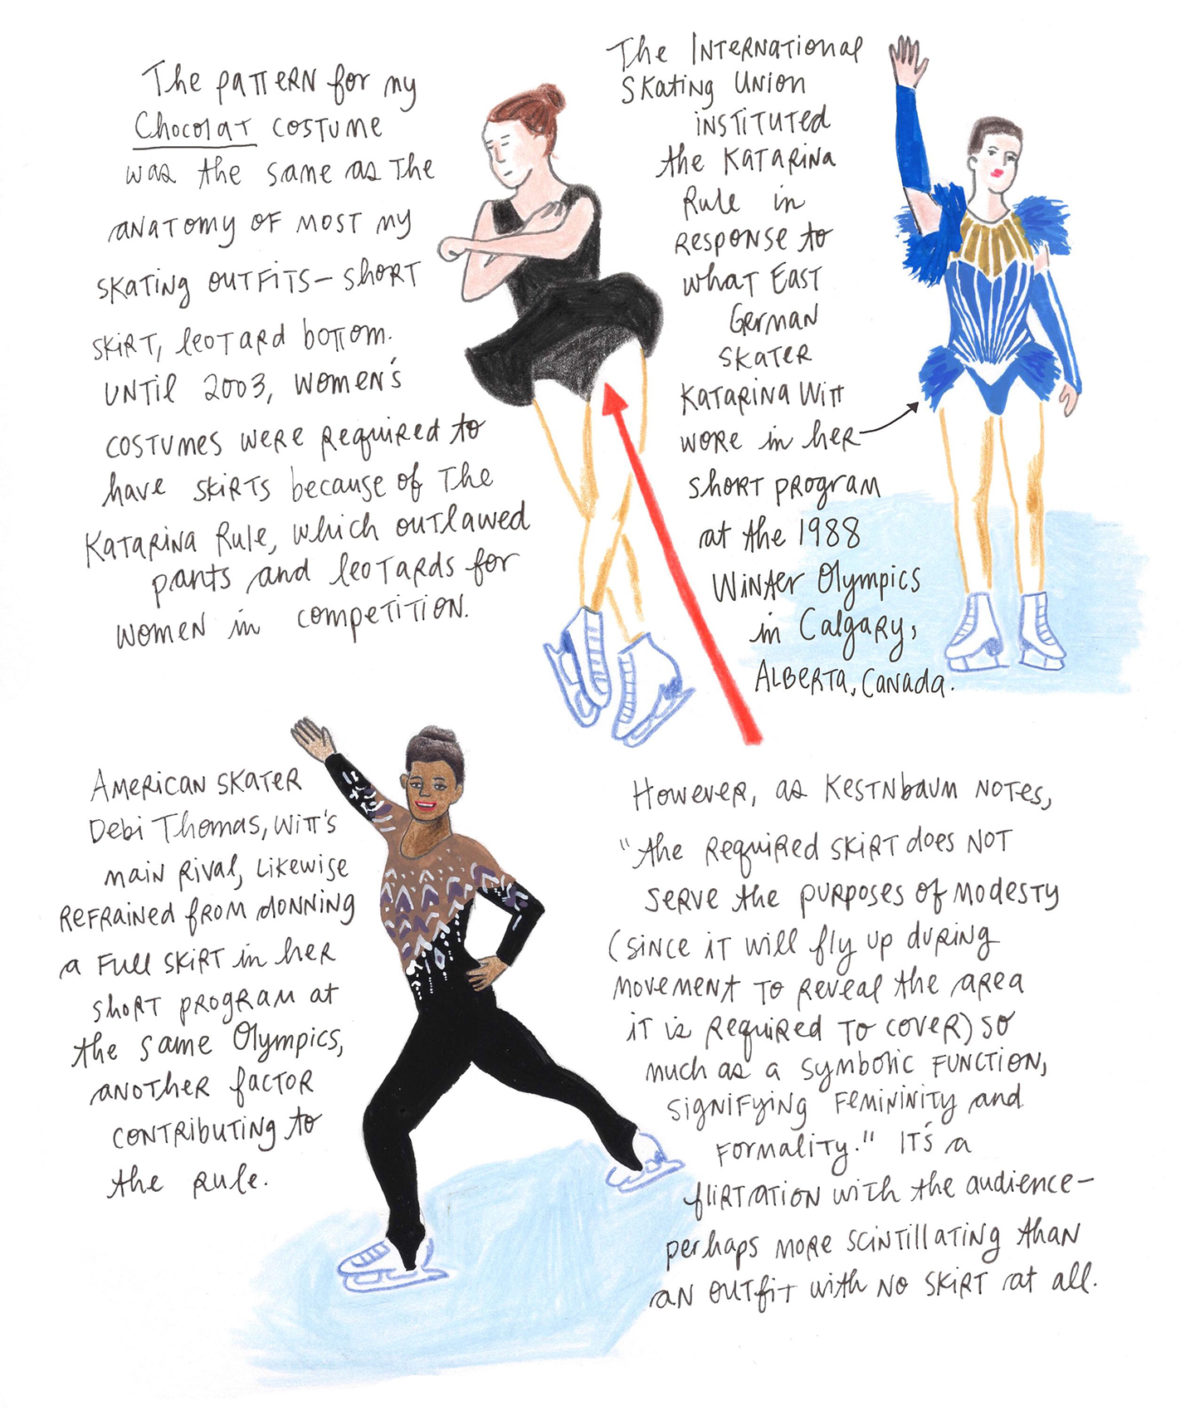 The pattern for my
Chocolat costume
was the same as the
anatomy of most my
skating outfits— short
skirt, leotard bottom.
Until 2003, women's
costumes were required to
have skirts because of the
Katarina Rule, which outlawed
pants and leotards for
women in competition.
The International
Skating Union
instituted
the Katarina
Rule in
response to
what East
German
skater
Katarina Witt
wore in her
short program
at the 1988
Winter Olympics
in Calgary,
Alberta, Canada.
American skater
Debi Thomas, Witt's
main rival, likewise
refrained from donning
a full skirt in her
short program at
the same Olympics,
another factor
contributing to
the rule.
However, as Kestnbaum notes,
"the required skirt does not
serve the purposes of modesty
(since it will fly up during
movement to reveal the area
it is required to cover) so
much as a symbolic function,
signifying femininity and
formality." It's a
flirtation with the audience—
perhaps more scintillating than
an outfit with no skirt at all.